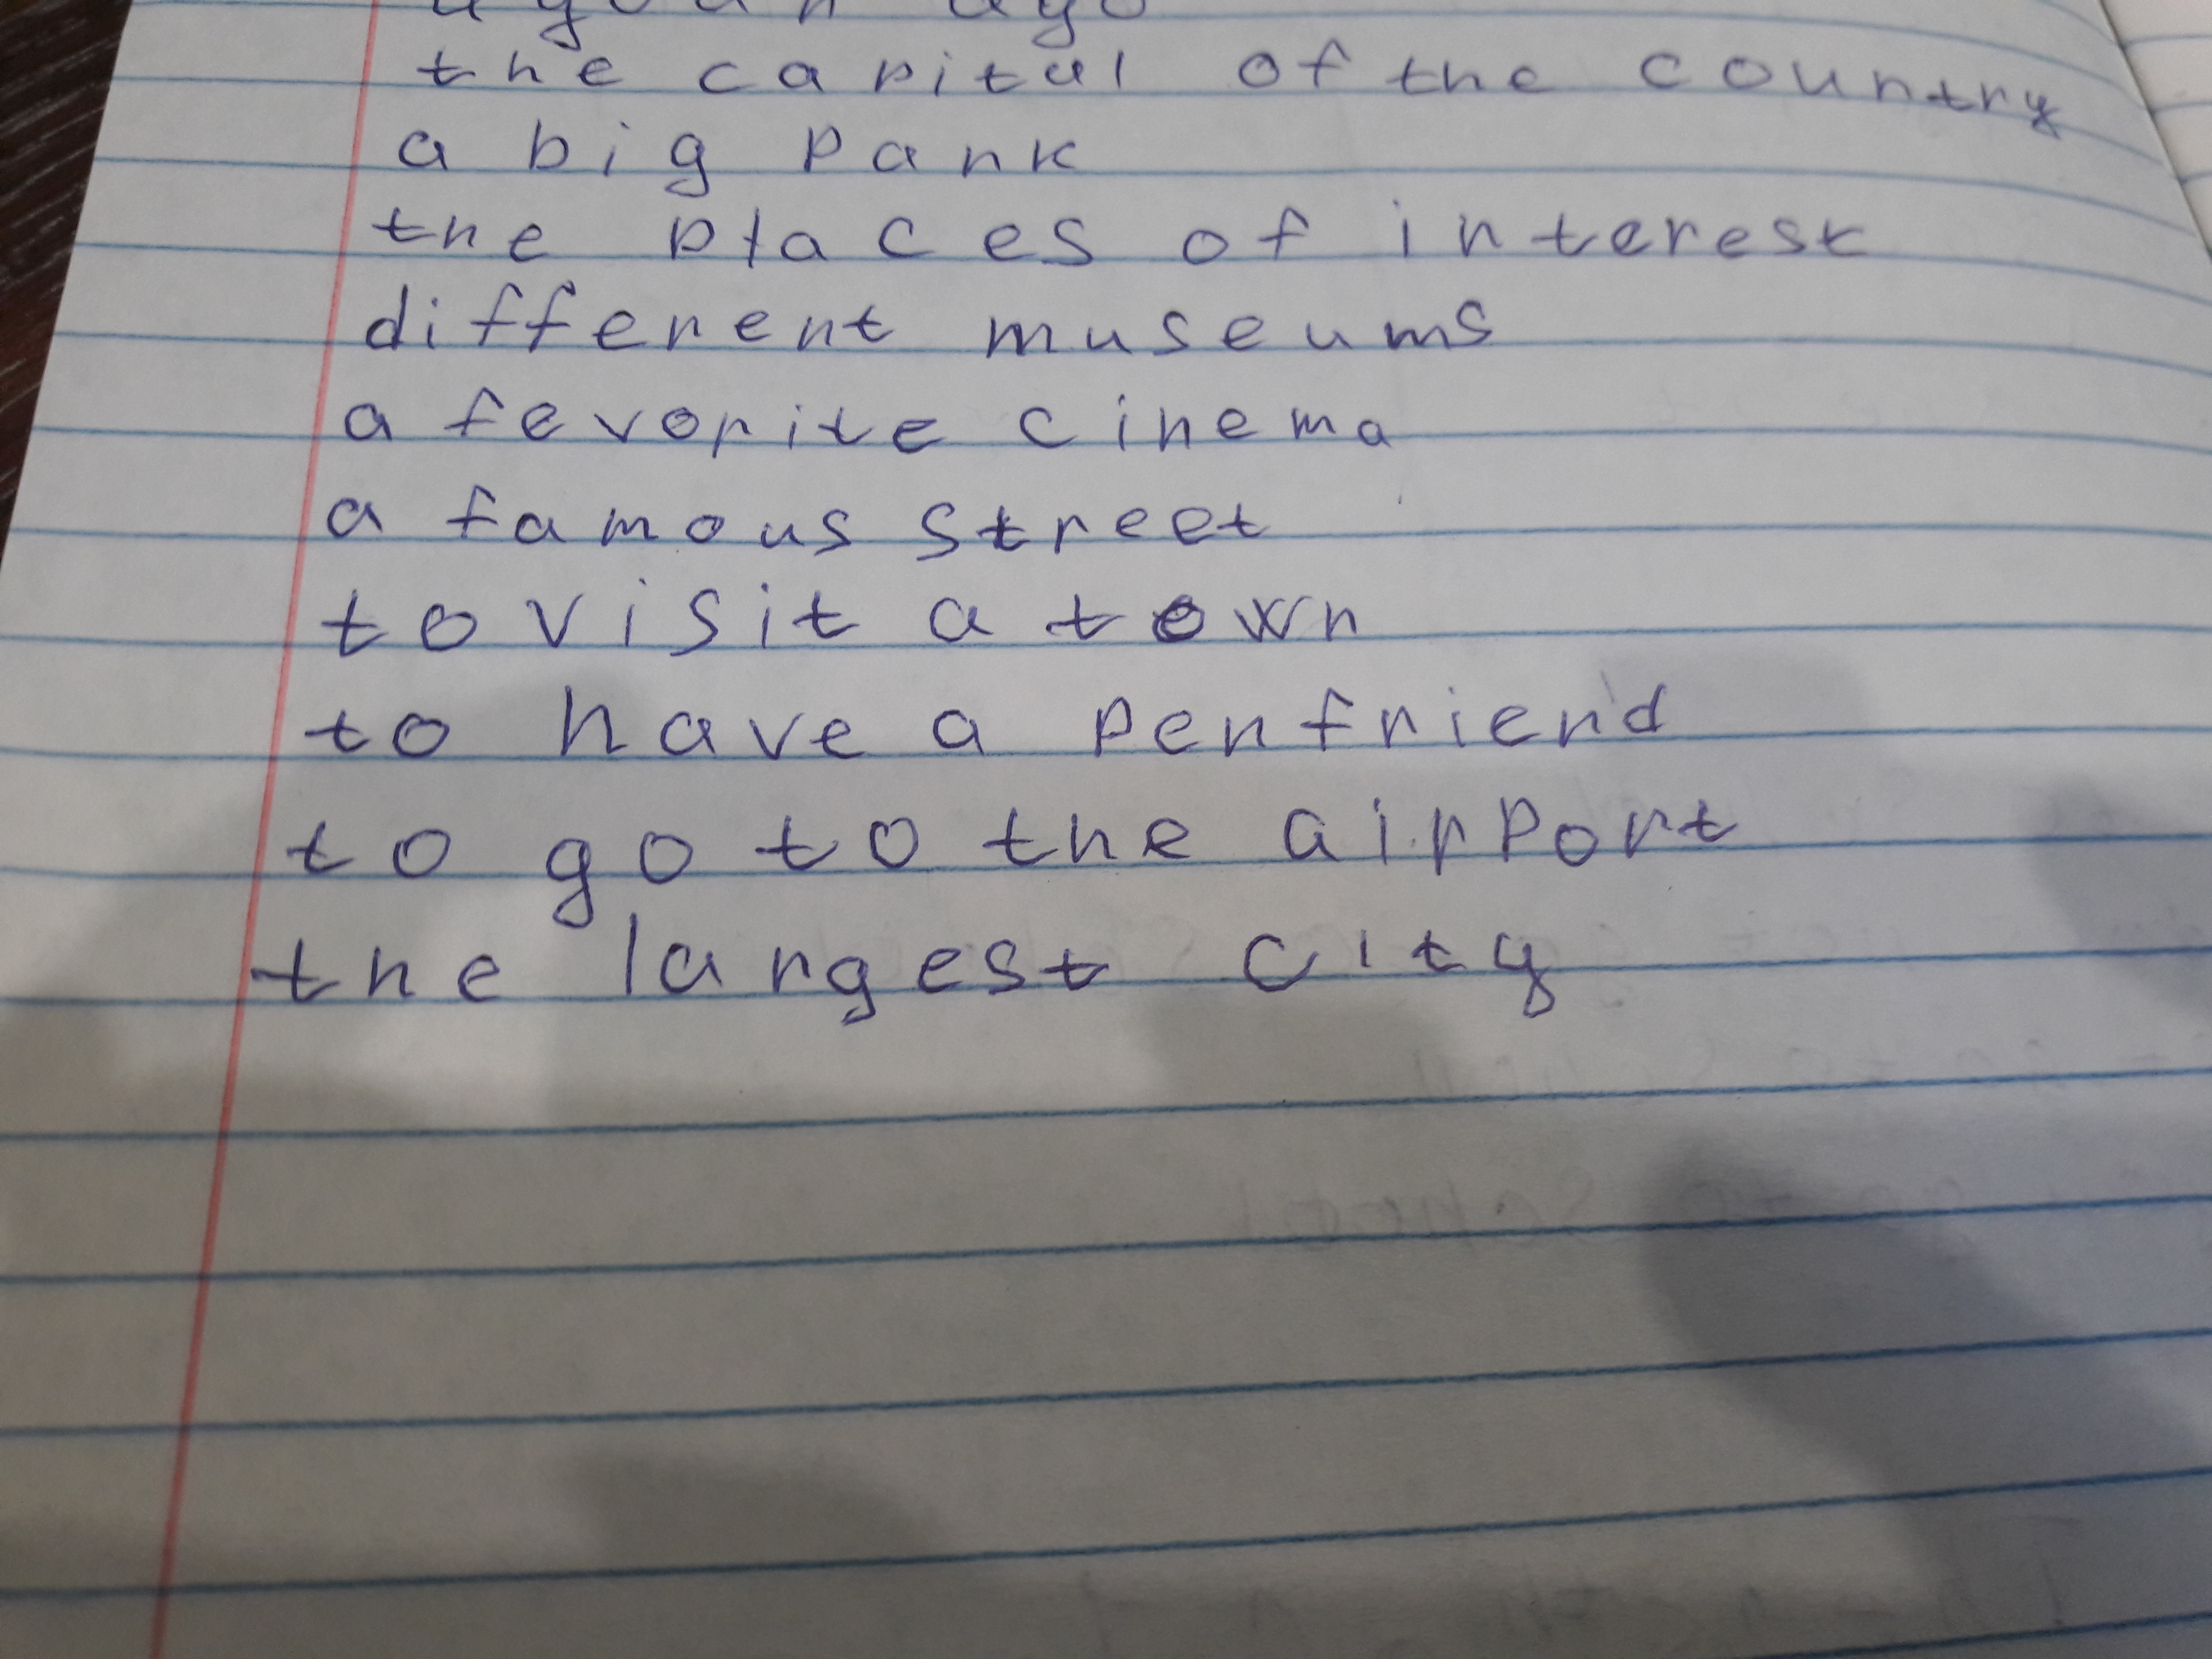 a year ago
the capital of the country
a big park
the places of interest
different museums
a fevorite cinema
a famous street
to visit a town
to have a penfriend
to go to the airport
the largest city